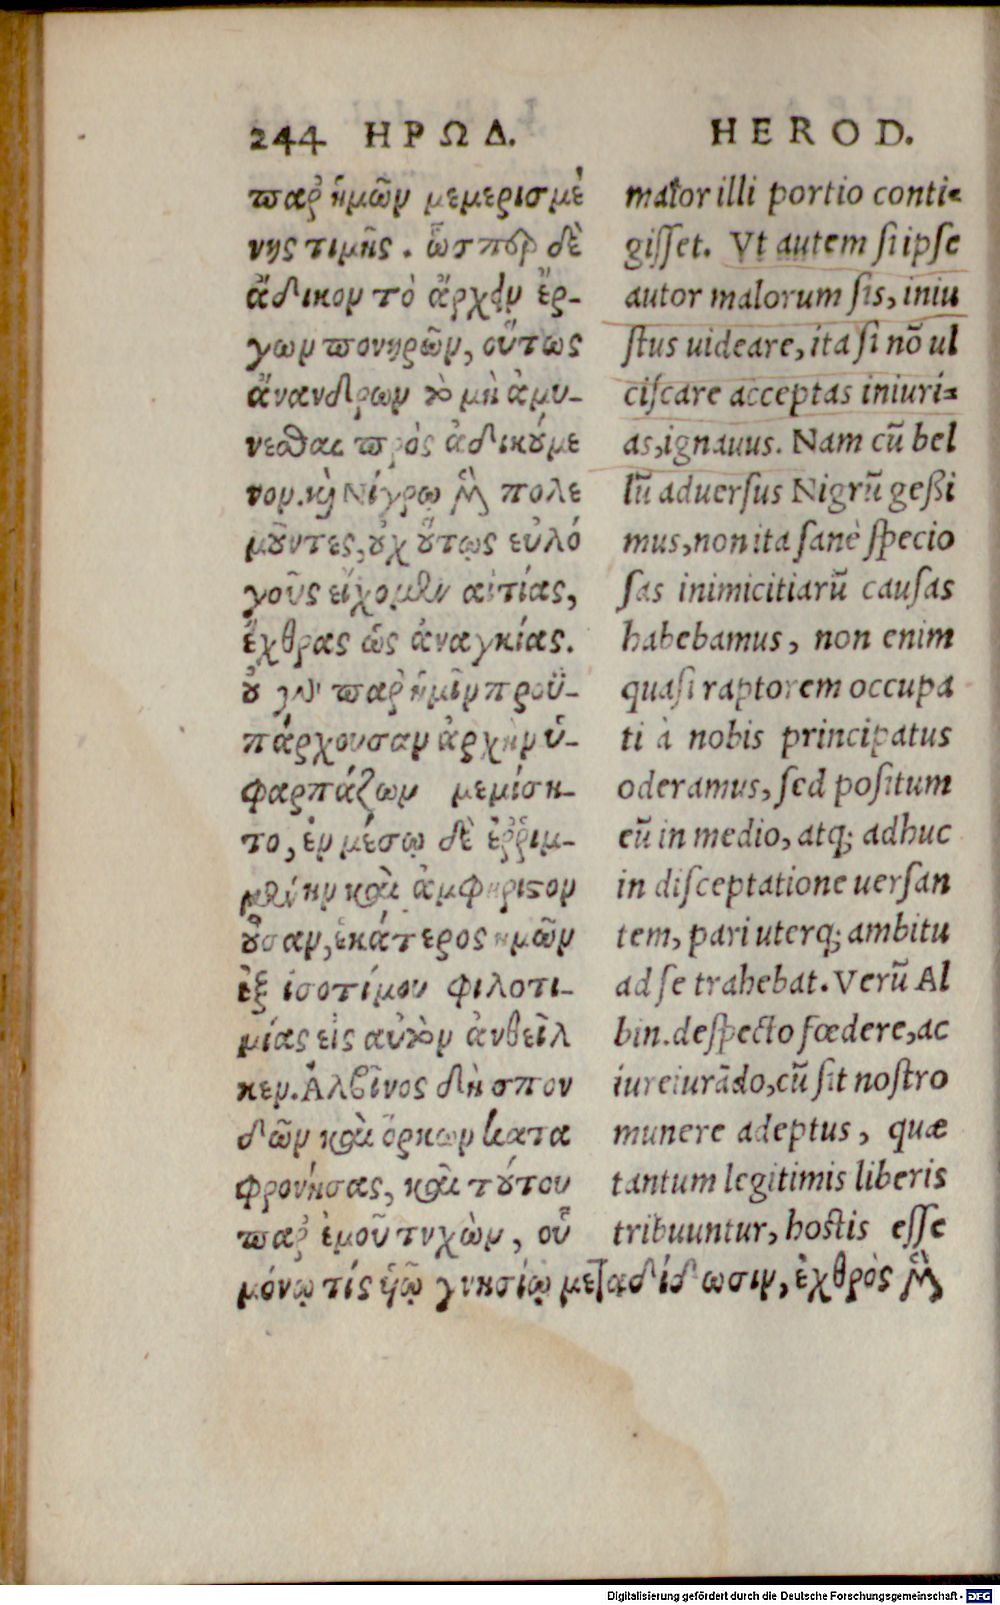 244 ΗΡΩΔ.
παρ' ἡμῶν μεμερισμέ
νης τιμῆς. ὥσπερ δὲ
ἄδικον τὸ ἄρχειν ἔρ-
γων πονηρῶν, οὕτως
ἄνανδρων τὸ μὴ ἀμυ-
νεσθαι πρὸς ἀδικούμε
νον. καὶ Νίγρῳ μὲν πολε
μοῦντες, οὐχ οὕτως εὐλό
γοῦς εἴχομεν αἰτίας,
ἔχθρας ὡς ἀναγκίας.
οὐ γὰρ παρ' ἡμῖν προϋ-
πάρχουσαν ἀρχὴν ὑ-
φαρπάζων μεμίση-
το, ἐν μέσῳ δὲ ἐῤῥιμ-
μένην καὶ ἀμφήριστον
οὖσαν, ἑκάτερος ἡμῶν
ἐξ ἰσοτίμου φιλοτι-
μίας εἰς αὑτὸν ἀνθεῖλ
κεν. Ἀλβῖνος δὴ σπον
δῶν καὶ ὅρκων κατα
φρονήσας, καὶ τούτου
παρ' ἐμοῦ τυχὼν, οὗ
μόνῳ τίς ὑῷ γνησίῳ μεταδίδωσιν, ἐχθρὸς μὲν
HEROD.
maior illi portio conti-
gisset. Vt autem si ipse
autor malorum sis, iniu
stus uideare, ita si nō ul
ciscare acceptas iniuri-
as, ignauus. Nam cū bel
lū aduersus Nigrū geßi
mus, non ita sanè specio
sas inimicitiarū causas
habebamus, non enim
quasi raptorem occupa
ti à nobis principatus
oderamus, sed positum
eū in medio, atq; adhuc
in disceptatione uersan
tem, pari uterq; ambitu
ad se trahebat. Verū Al
bin. despecto fœdere, ac
iureiurādo, cū sit nostro
munere adeptus, quæ
tantum legitimis liberis
tribuuntur, hostis esse
Digitalisierung gefördert durch die Deutsche Forschungsgemeinschaft - DFG